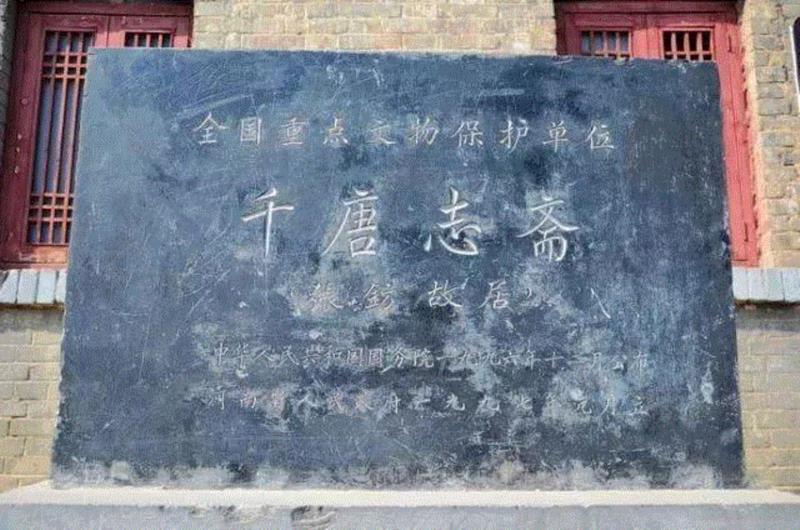 全国重点文物保护单位
千唐志斋
（张钫故居）
中华人民共和国国务院一九九六年十一月公布
河南省人民政府一九九七年元月立